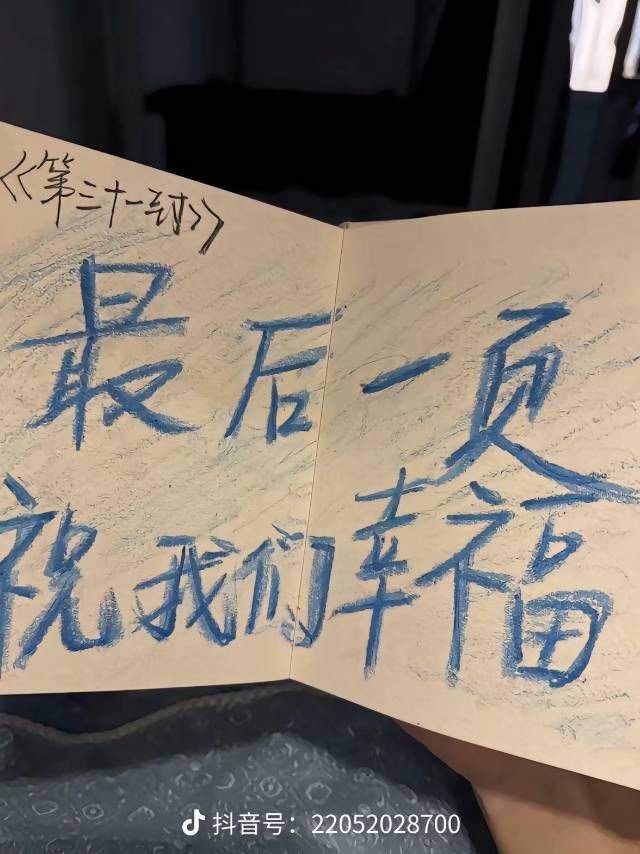 《第三十一封》
最后一页
祝我们幸福
抖音号：22052028700